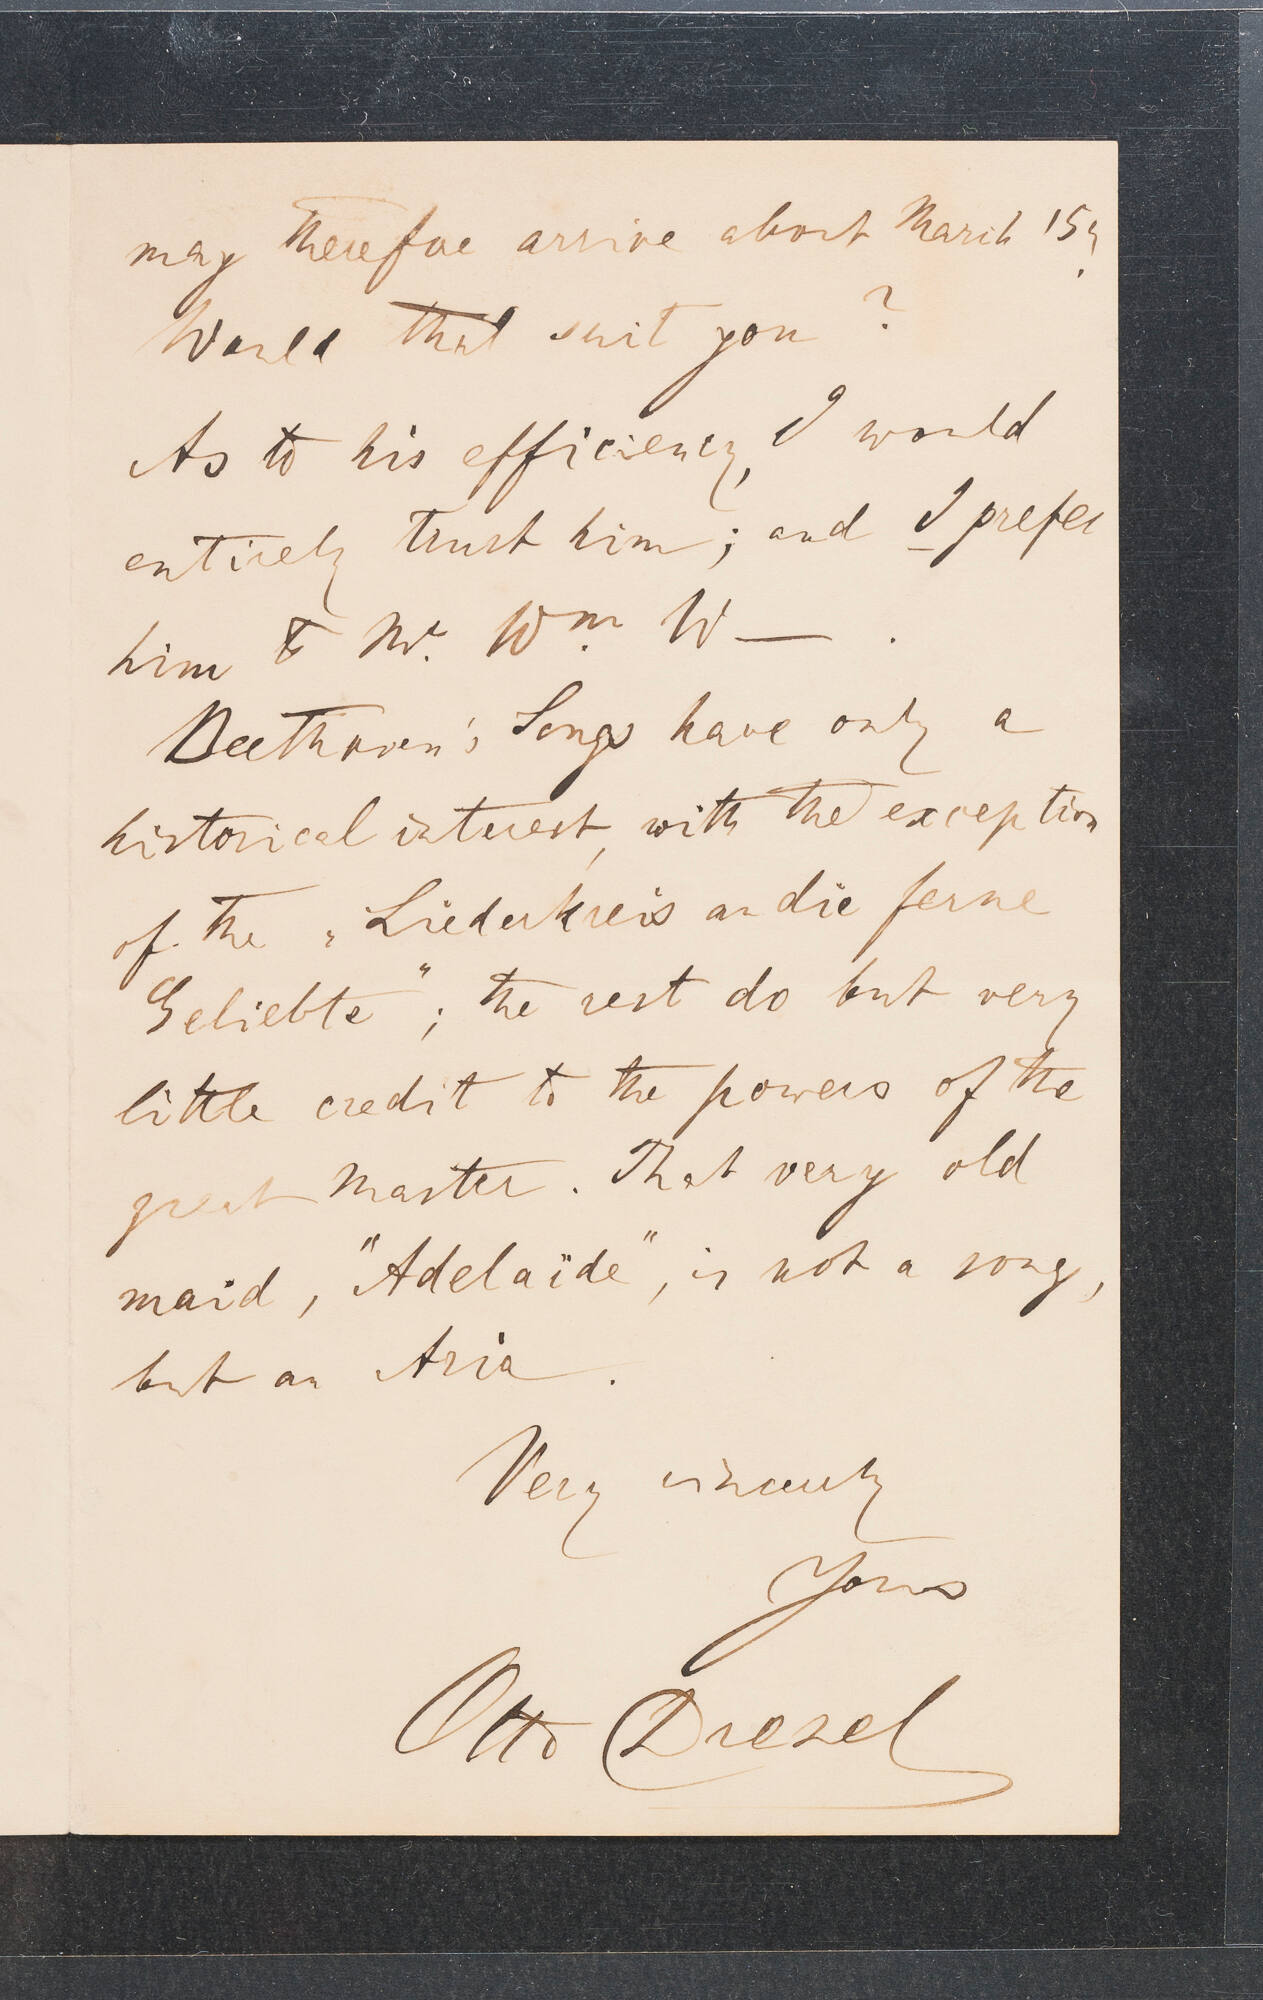 may therefore arrive about March 15.
Would that suit you?
As to his efficiency, I would
entirely trust him; and I prefer
him to Mr. Wm. W—.
Beethoven's Songs have only a
historical interest, with the exception
of the „Liederkreis an die ferne
Geliebte"; the rest do but very
little credit to the powers of the
great Master. That very old
maid, "Adelaïde", is not a song,
but an Aria.
Very sincerely
Yours
Otto Dresel